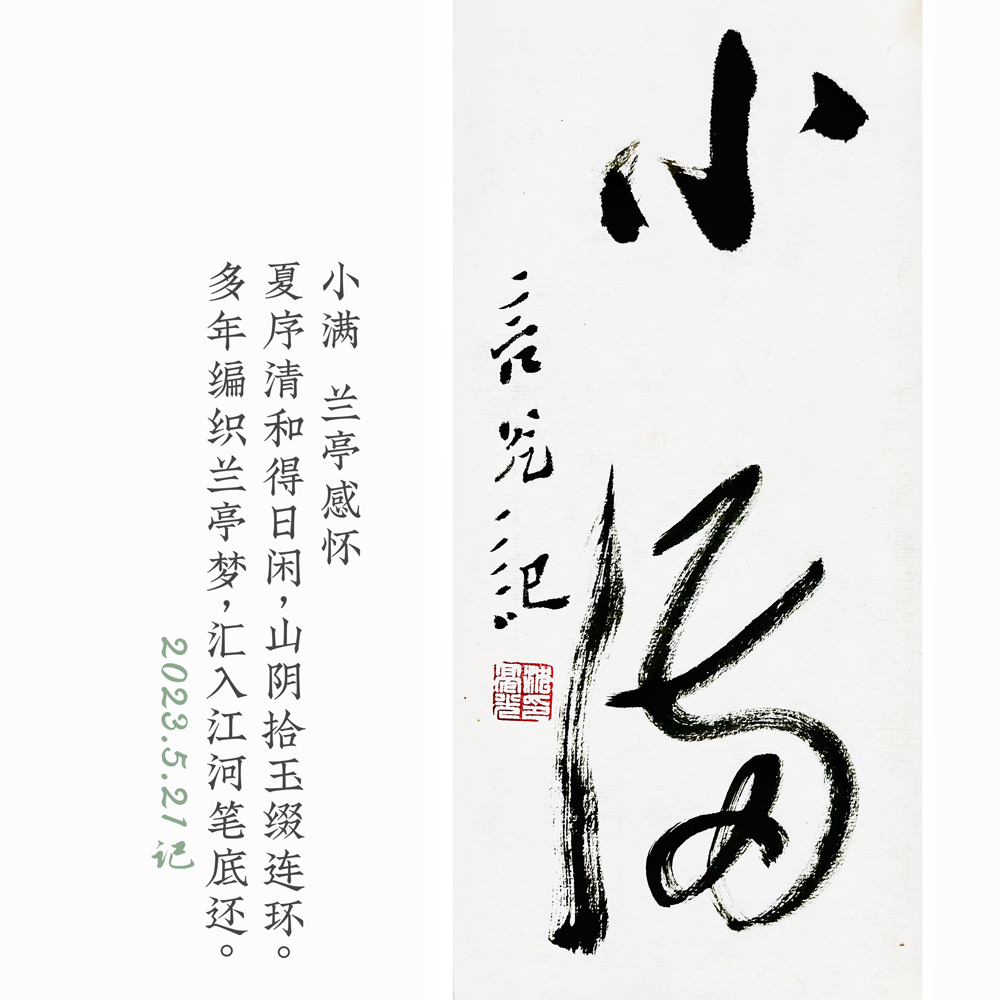 小满
小满 兰亭感怀
夏序清和得日闲，山阴拾玉缀连环。
多年编织兰亭梦，汇入江河笔底还。
2023.5.21 记